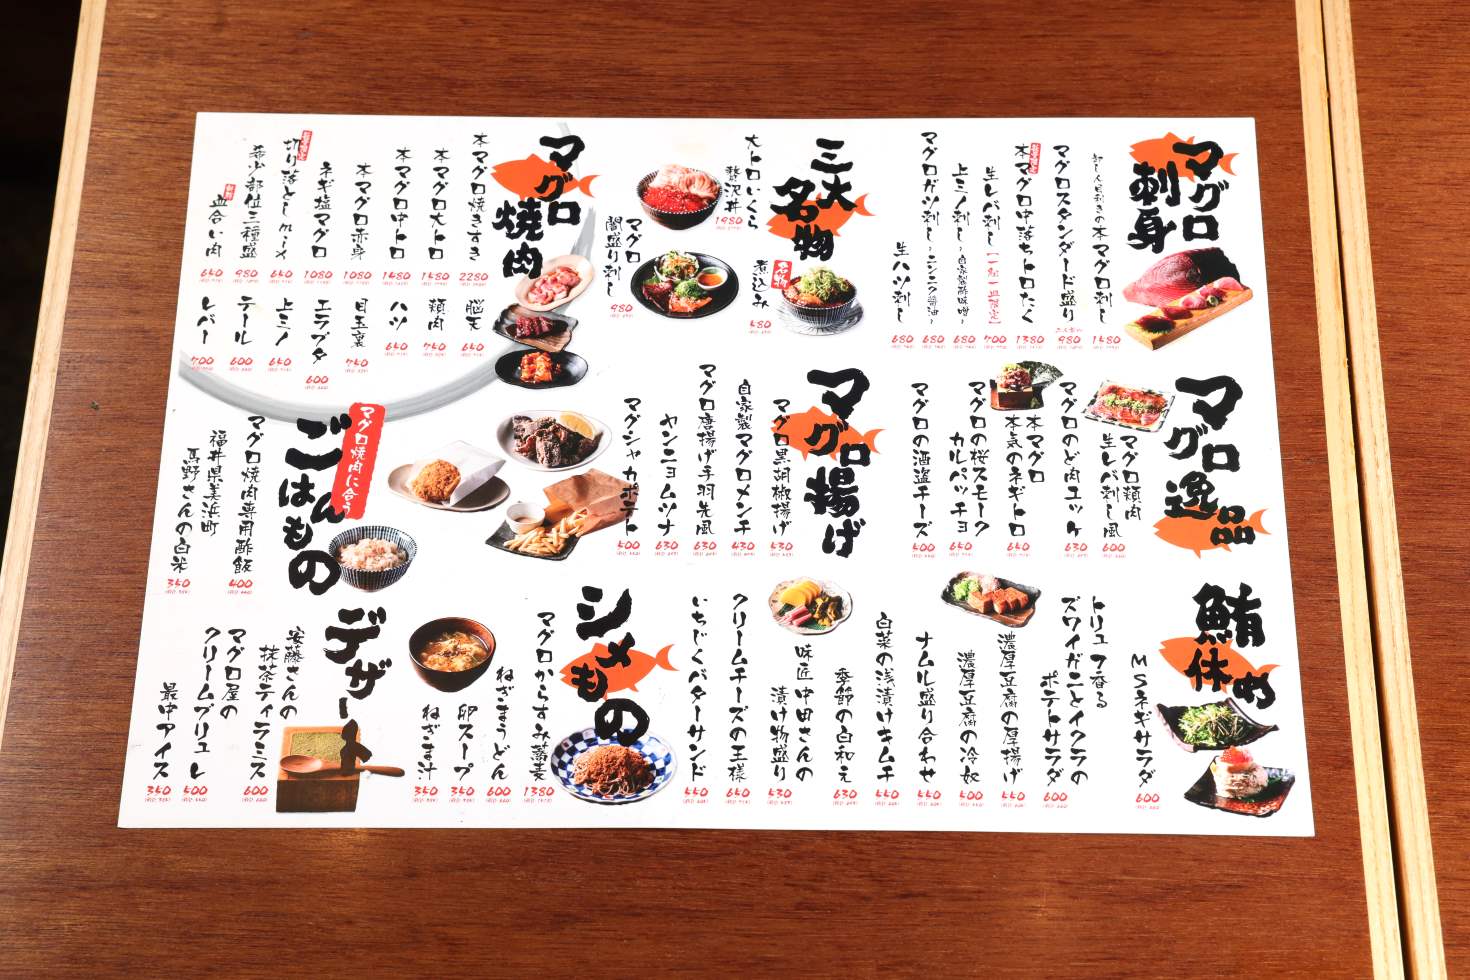 マグロ
刺身
卸し人目利きの本マグロ刺し
1480
マグロスタンダード盛り
980
本マグロ中落ちトロたく
1380
生レバ刺し【一組一皿限定】
700
上ミノ刺し～自家製酢味噌～
680
マグロガツ刺し～ニンニク醤油～
680
生ハツ刺し
680
三大
名物
名物
煮込み
480
大トロいくら
贅沢丼
1980
マグロ
闇盛り刺し
980
マグロ
焼肉
本マグロ焼きすき
2280
本マグロ大トロ
1480
本マグロ中トロ
1480
本マグロ赤身
1080
ネギ塩マグロ
1080
切り落としmix
640
希少部位三種盛
980
血合い肉
640
脳天
640
頬肉
640
ハツ
640
目玉裏
740
エラブタ
600
上ミノ
640
テール
600
レバー
700
マグロ
逸品
マグロ頬肉
生レバ刺し風
600
マグロのど肉ユッケ
630
本マグロ
本気のネギトロ
640
マグロの桜スモーク
カルパッチョ
640
マグロの酒盗チーズ
400
マグロ揚げ
マグロ黒胡椒揚げ
430
自家製マグロメンチ
430
マグロ唐揚げ手羽先風
630
ヤンニョムツナ
630
マグシャカポテト
400
マグロ焼肉に合う
ごはんもの
マグロ焼肉専用酢飯
400
福井県美浜町
高野さんの白米
340
鮪
休め
MSネギサラダ
600
トリュフ香る
ズワイガニとイクラの
ポテトサラダ
600
濃厚豆腐の厚揚げ
440
濃厚豆腐の冷奴
400
ナムル盛り合わせ
440
白菜の浅漬けキムチ
440
季節の白和え
630
味匠 中田さんの
漬け物盛り
430
クリームチーズの王様
640
いちじくバターサンド
440
シメもの
マグロからすみ蕎麦
1380
ねぎまうどん
600
卵スープ
340
ねぎま汁
340
デザート
安藤さんの
抹茶ティラミス
600
マグロ屋の
クリームブリュレ
400
最中アイス
340